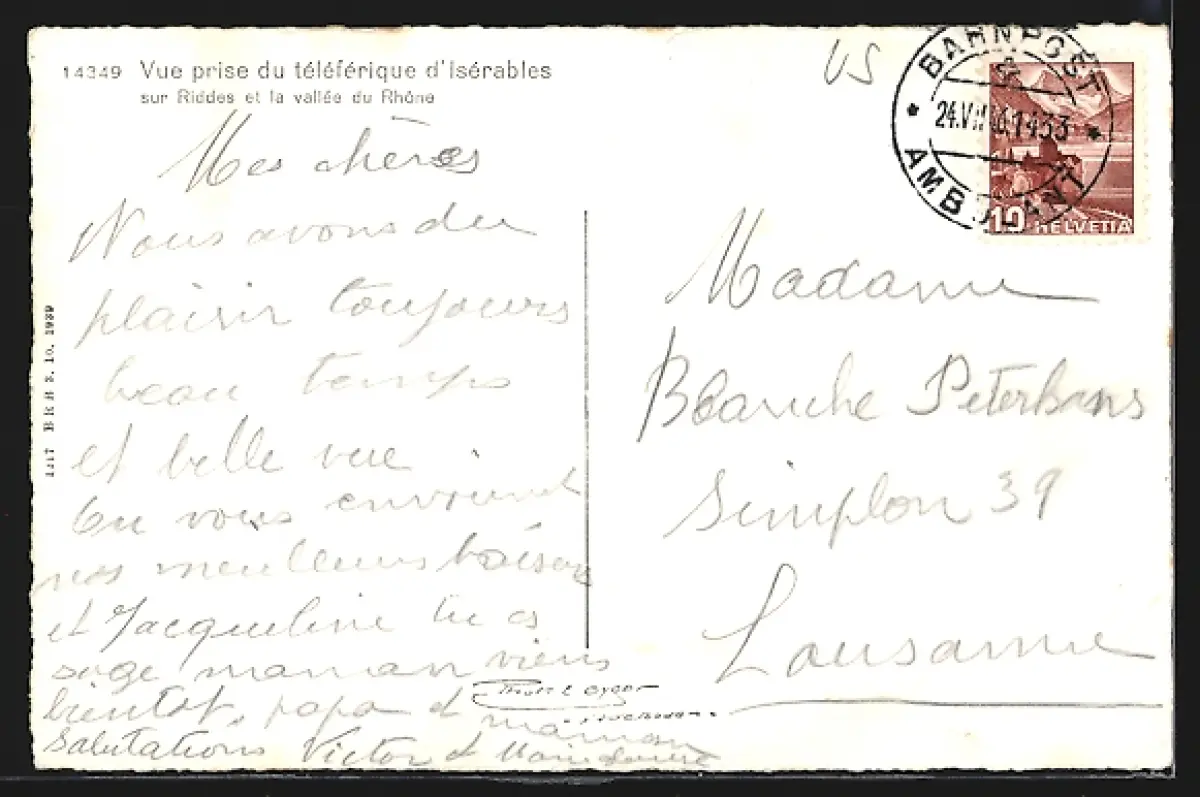 14349 Vue prise du téléférique d'Isérables
sur Riddes et la vallée du Rhône
VS
BAHNPOST
24.VII 1433
AMBULANT
10 HELVETIA
Mes chères
Nous avons du
plaisir toujours
beau temps
et belle vue
En vous envoyant
nos meilleurs baisers
et Jacqueline tu es
sage maman viens
bientot, papa et
maman
Salutations Victor et
Madame
Blanche Peterhans
Simplon 39
Lausanne